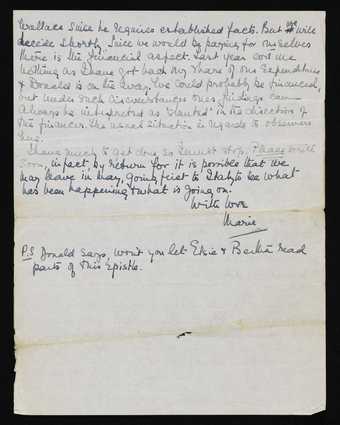 Wallace since he requires established facts. But we will
decide shortly. Since we would be paying for ourselves
there is the financial aspect. Last year cost me
nothing as I have got back my share of our expenditures
& Donald's is on the way. We could probably be financed,
but under such circumstances ones findings can
always be interpreted as "slanted" in the direction of
the financer. The usual situation in regards to observers
here.
I have much to get done so I must stop. Please write
soon, in fact by return for it is possible that we
may leave in May, going first to Italy to see what
has been happening & what is going on.
With love
Marie
P.S Donald says, won't you let Elsie & Bertha read
parts of this Epistle.